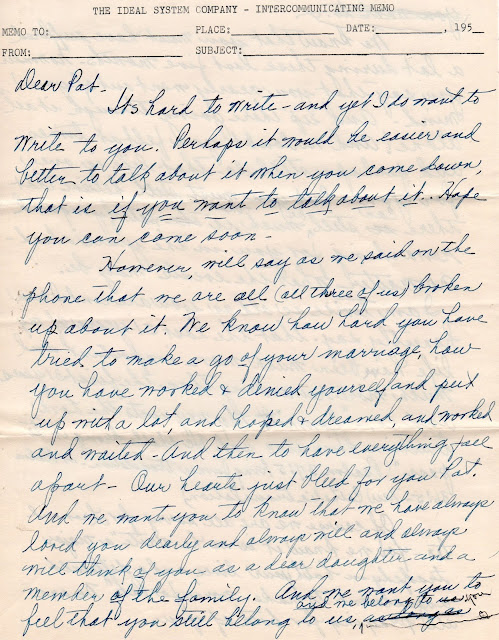 THE IDEAL SYSTEM COMPANY - INTERCOMMUNICATING MEMO
MEMO TO: PLACE: DATE: , 195
FROM: SUBJECT:
Dear Pat -
Its hard to write - and yet I do want to
write to you. Perhaps it would be easier and
better to talk about it when you come down,
that is if you want to talk about it. Hope
you can come soon -
However, will say as we said on the
phone that we are all (all three of us) broken
up about it. We know how hard you have
tried to make a go of your marriage, how
you have worked & denied yourself and put
up with a lot, and hoped & dreamed, and worked
and waited - And then to have everything fall
apart - Our hearts just bleed for you Pat.
And we want you to know that we have always
loved you dearly and always will and always
will think of you as a dear daughter and a
member of the family. And we want you to
and we belong to you
feel that you still belong to us,